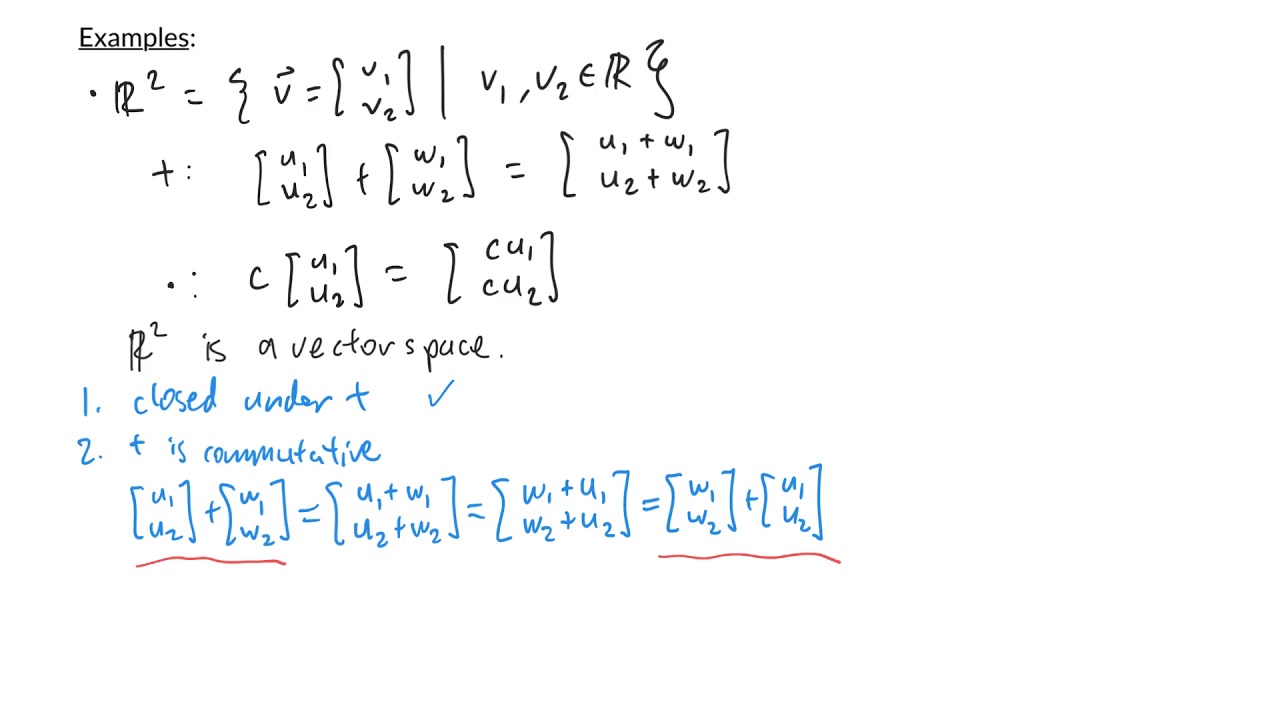 Examples:
• ℝ² = { v⃗ = [v₁ v₂] | v₁, v₂ ∈ ℝ }
+: [u₁ u₂] + [w₁ w₂] = [u₁ + w₁ u₂ + w₂]
•: c [u₁ u₂] = [cu₁ cu₂]
ℝ² is a vector space.
1. closed under + ✓
2. + is commutative
[u₁ u₂] + [w₁ w₂] = [u₁ + w₁ u₂ + w₂] = [w₁ + u₁ w₂ + u₂] = [w₁ w₂] + [u₁ u₂]